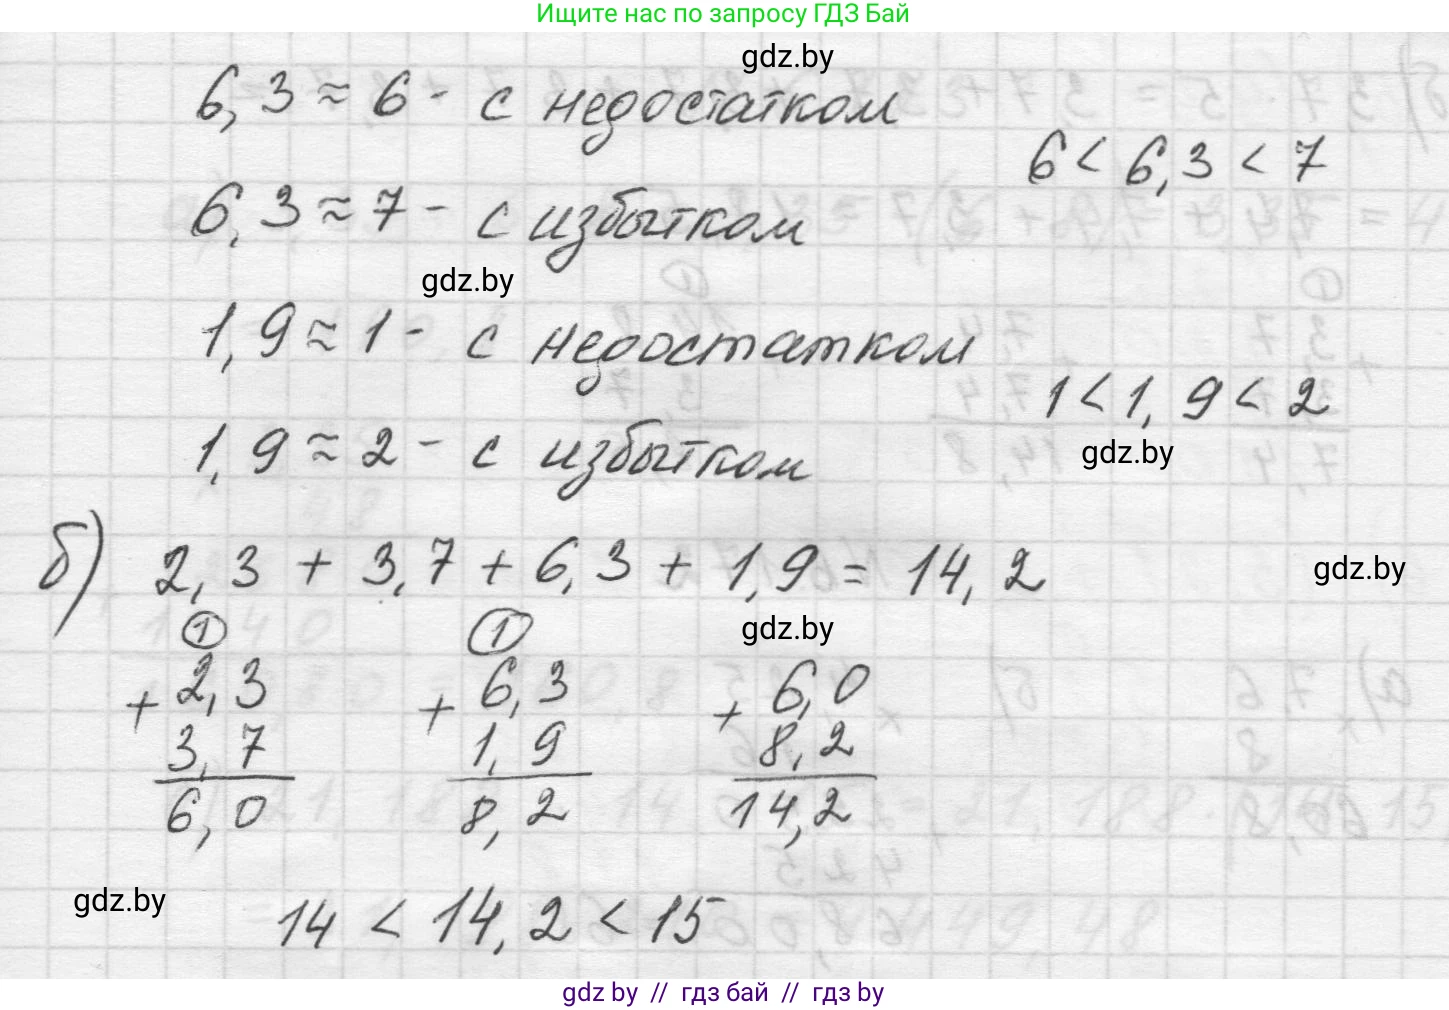 Ищите нас по запросу ГДЗ Бай
gdz.by
6,3 ≈ 6 - с недостатком
6 < 6,3 < 7
6,3 ≈ 7 - с избытком
gdz.by
1,9 ≈ 1 - с недостатком
1 < 1,9 < 2
gdz.by
1,9 ≈ 2 - с избытком
б) 2,3 + 3,7 + 6,3 + 1,9 = 14,2
gdz.by
gdz.by
1 1
+ 2,3 + 6,3 + 6,0
3,7 1,9 8,2
6,0 8,2 14,2
gdz.by
14 < 14,2 < 15
gdz by // гдз бай // гдз by